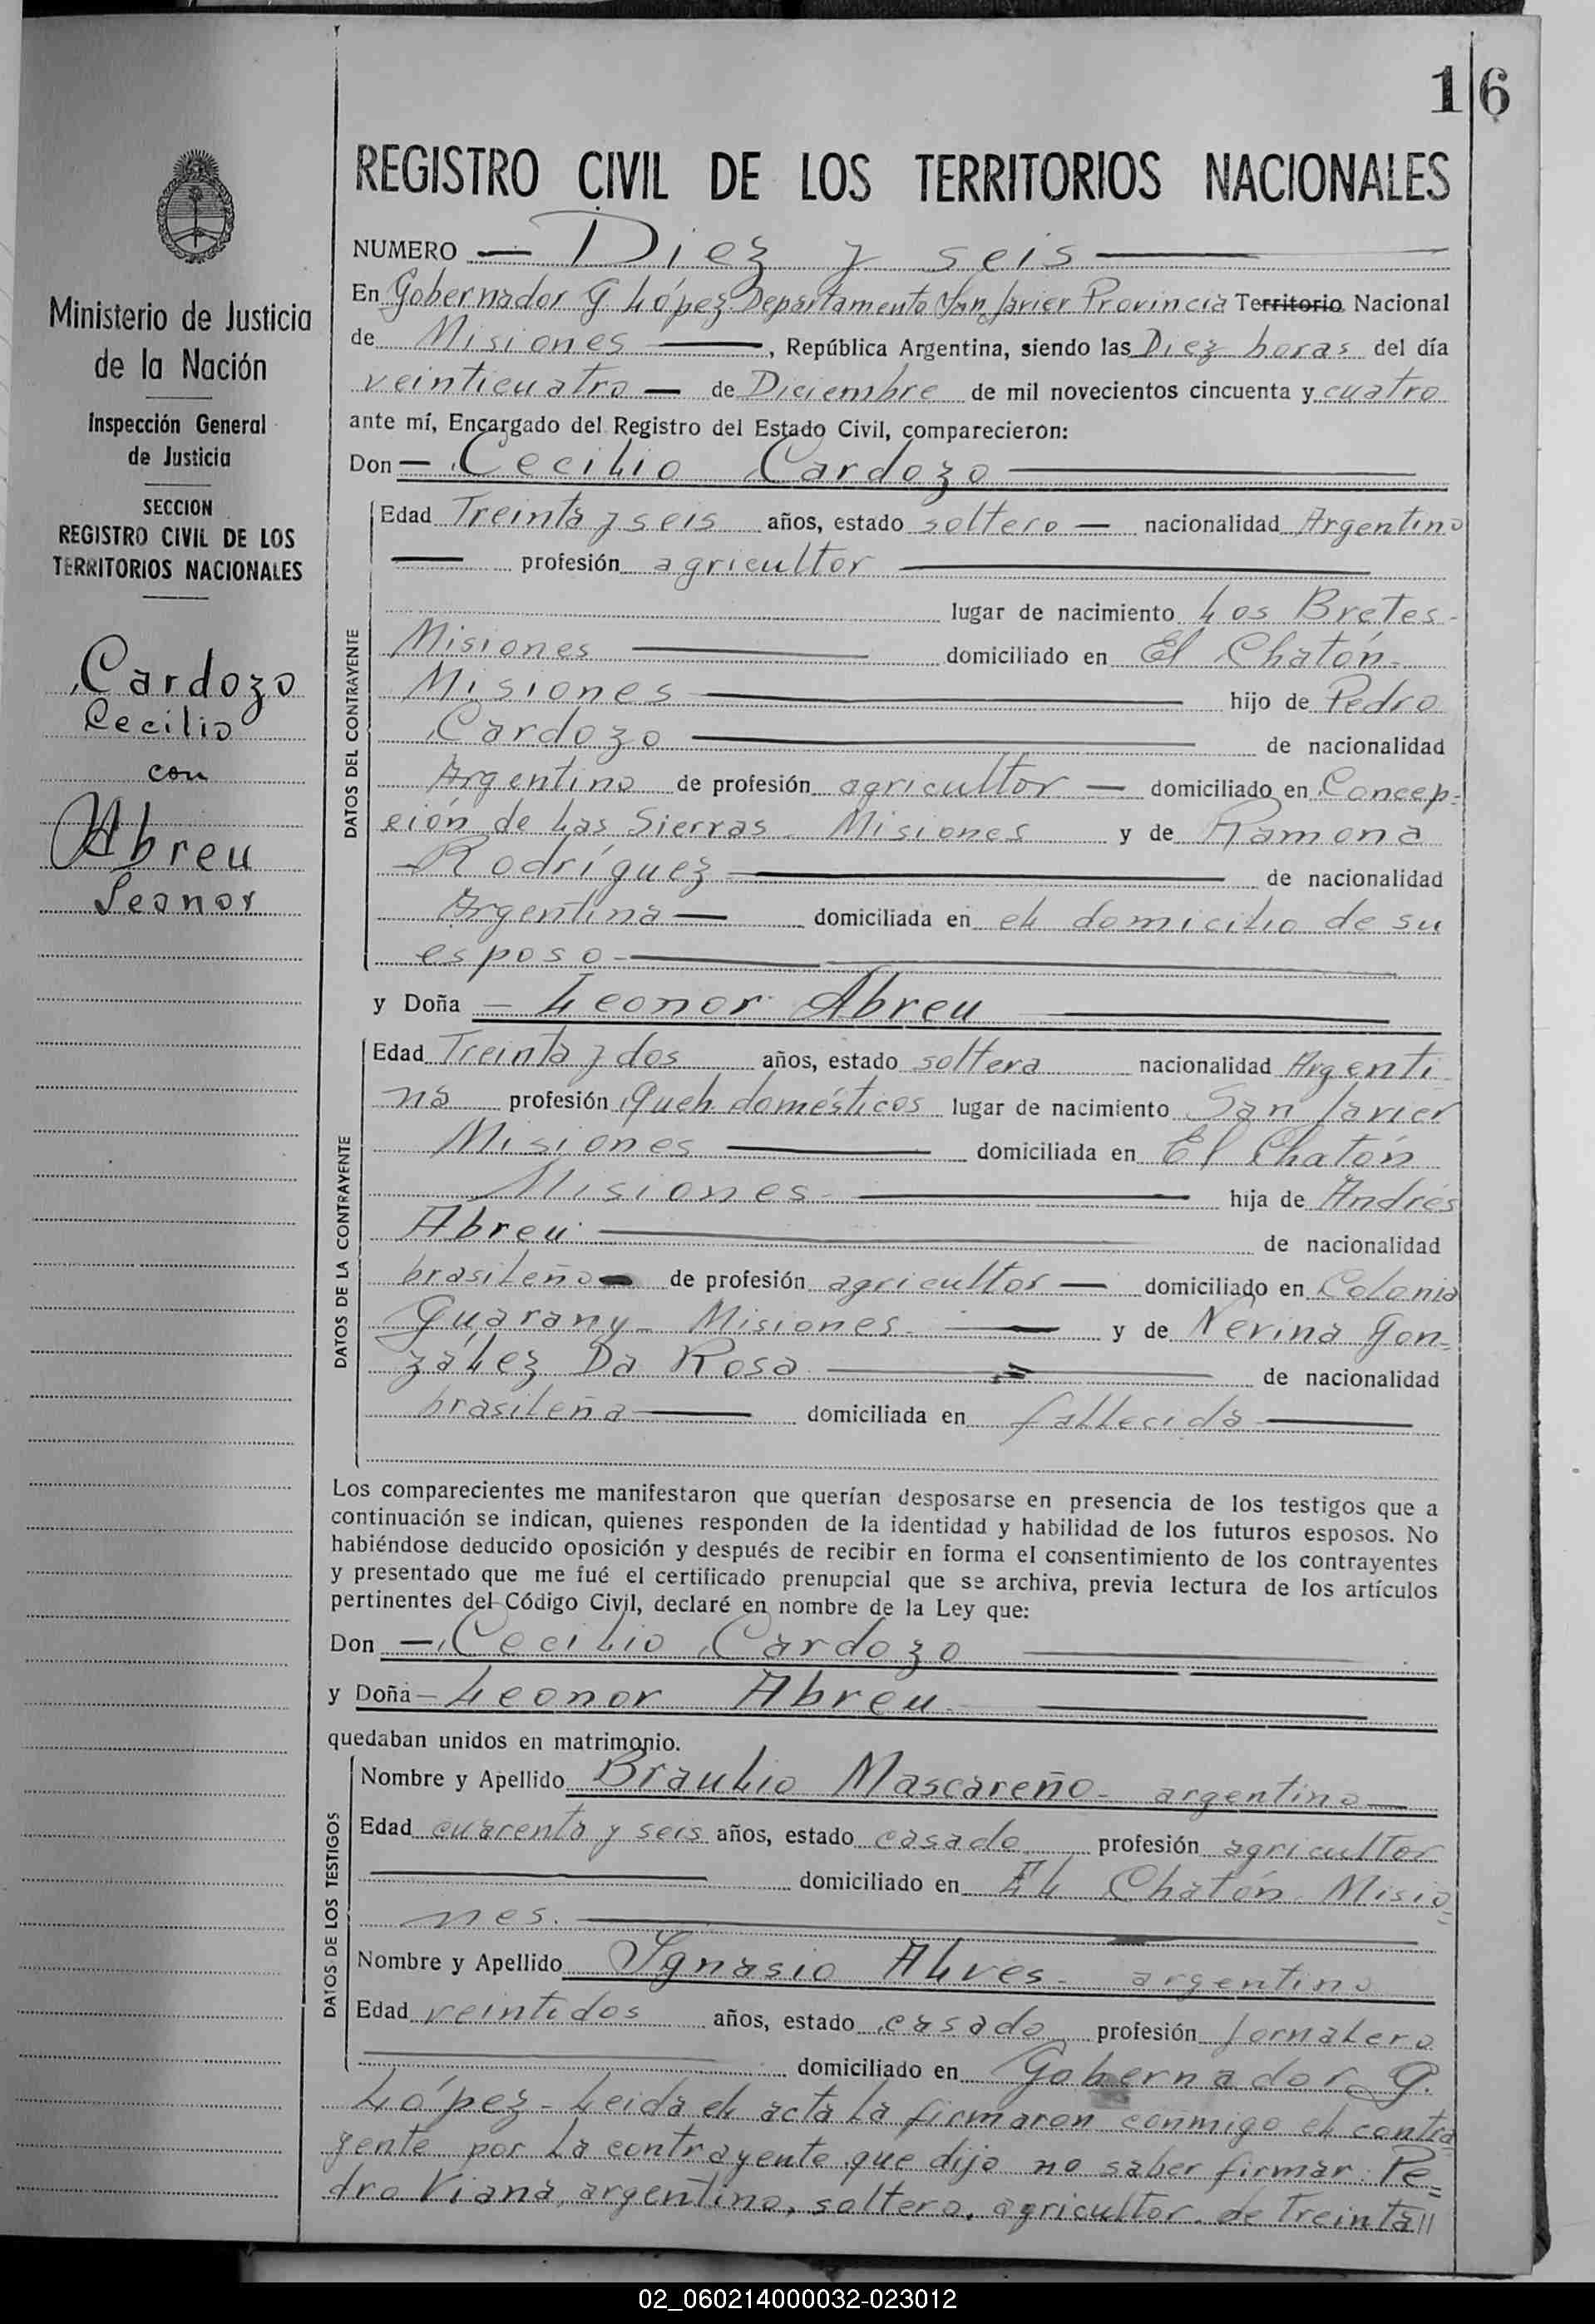 16
REGISTRO CIVIL DE LOS TERRITORIOS NACIONALES
Ministerio de Justicia
de la Nación
Inspección General
de Justicia
SECCION
REGISTRO CIVIL DE LOS
TERRITORIOS NACIONALES
Cardozo
Cecilio
con
Abreu
Leonor
NUMERO — Diez y seis —
En Gobernador G López Departamento San Javier Provincia Territorio Nacional
de Misiones —, República Argentina, siendo las Diez horas del día
veinticuatro — de Diciembre de mil novecientos cincuenta y cuatro
ante mí, Encargado del Registro del Estado Civil, comparecieron:
Don — Cecilio Cardozo —
DATOS DEL CONTRAYENTE
Edad Treinta y seis años, estado soltero — nacionalidad Argentino
— profesión agricultor —
lugar de nacimiento Los Bretes -
Misiones — domiciliado en El Chatón -
Misiones — hijo de Pedro
Cardozo — de nacionalidad
Argentino de profesión agricultor — domiciliado en Concep=
ción de Las Sierras - Misiones y de Ramona
Rodríguez — de nacionalidad
Argentina — domiciliada en el domicilio de su
esposo —
y Doña — Leonor Abreu —
DATOS DE LA CONTRAYENTE
Edad Treinta y dos años, estado soltera nacionalidad Argenti
na profesión Queh domésticos lugar de nacimiento San Javier
Misiones — domiciliada en El Chatón
Misiones — hija de Andrés
Abreu — de nacionalidad
brasileño — de profesión agricultor — domiciliado en Colonia
Guarany - Misiones - — y de Nevina Gon=
zález Da Rosa — de nacionalidad
brasileña — domiciliada en fallecida —
Los comparecientes me manifestaron que querían desposarse en presencia de los testigos que a
continuación se indican, quienes responden de la identidad y habilidad de los futuros esposos. No
habiéndose deducido oposición y después de recibir en forma el consentimiento de los contrayentes
y presentado que me fué el certificado prenupcial que se archiva, previa lectura de los artículos
pertinentes del Código Civil, declaré en nombre de la Ley que:
Don — Cecilio Cardozo —
y Doña — Leonor Abreu —
quedaban unidos en matrimonio.
DATOS DE LOS TESTIGOS
Nombre y Apellido Braulio Mascareño - argentino —
Edad cuarenta y seis años, estado casado profesión agricultor
— domiciliado en El Chatón Misio=
nes. —
Nombre y Apellido Ygnasio Alves - argentino
Edad veintidos años, estado casado profesión Jornalero
— domiciliado en Gobernador G.
López - Leida el acta la firmaron conmigo el contra
yente por la contrayente que dijo no saber firmar Pe=
dro Viana, argentino, soltero, agricultor de treinta //
02_060214000032-023012